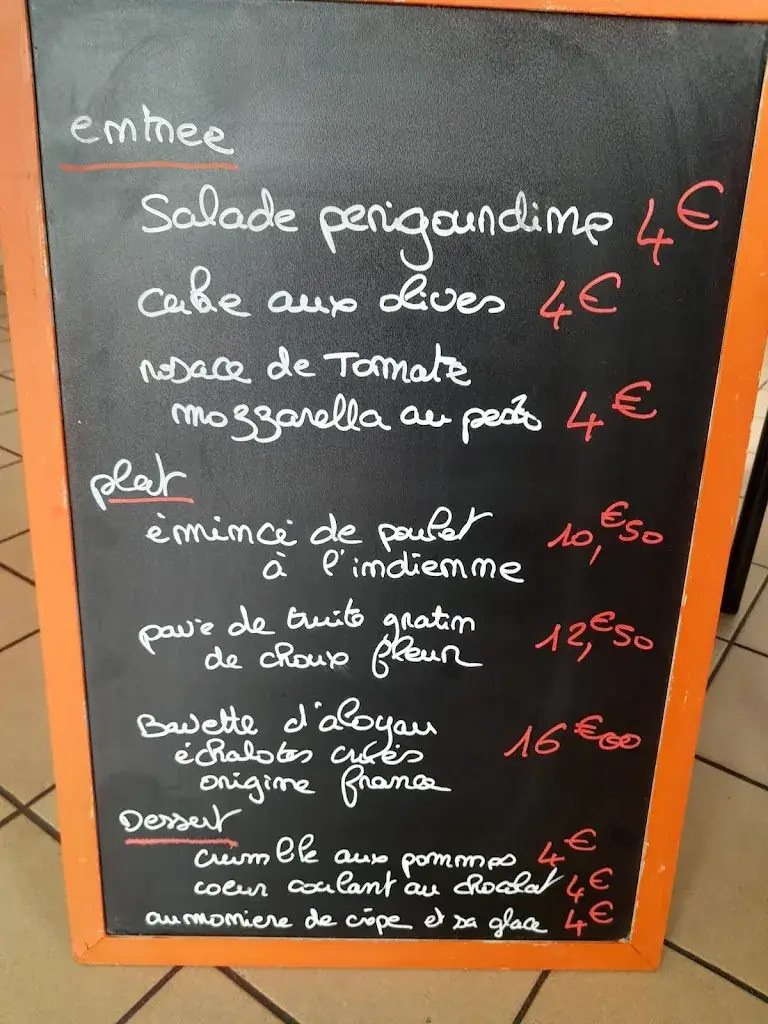 entree
Salade perigourdine 4€
cake aux olives 4€
rosace de Tomate
mozzarella au pesto 4€
plat
èmincé de poulet 10,€50
à l'indienne
pavé de truite gratin 12,€50
de choux fleur
Bavette d'aloyau 16€00
échalotes
origine france
Dessert
crumble aux pommes 4€
coeur coulant au chocolat 4€
aumoniere de crêpe et sa glace 4€